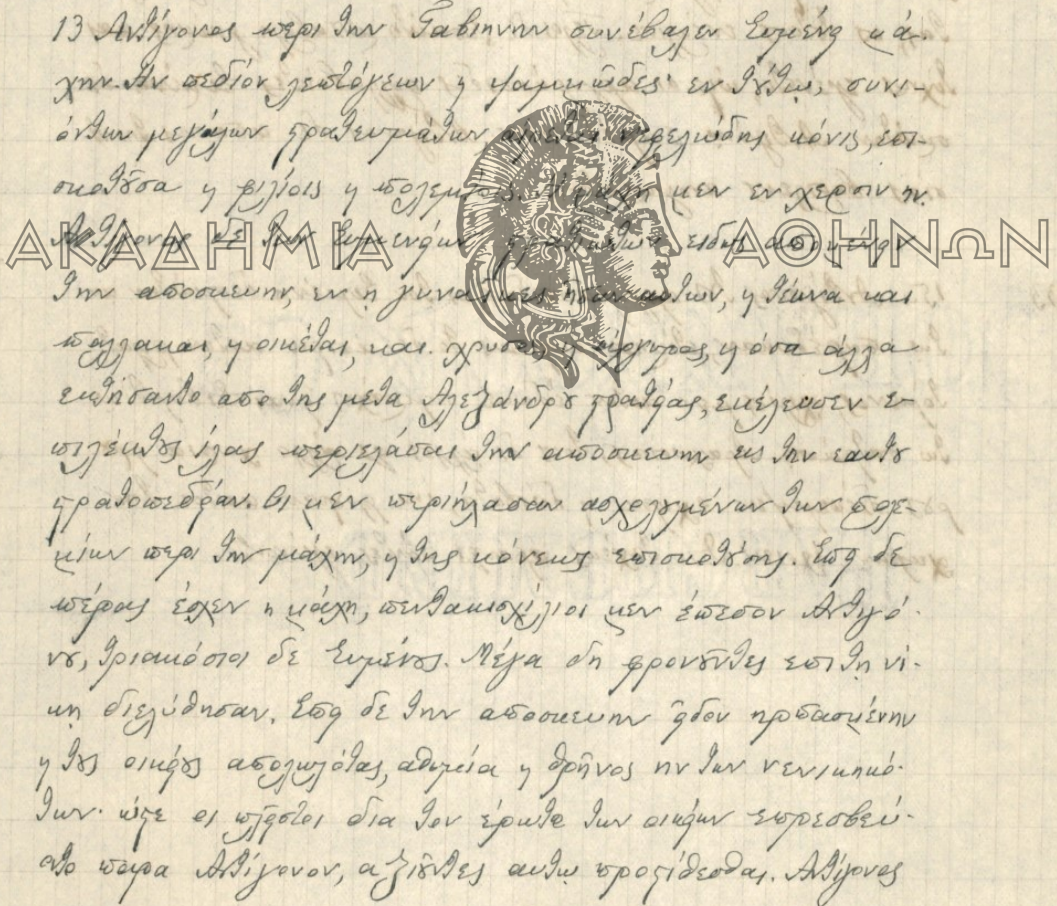 13 Αντίγονος περι την Γαβιηνην συνέβαλεν Ευμένει μά-
χην. Ην πεδίον λεπτόγεων ϗ ψαμμῶδες· εν τȣτῳ, συνι-
όντων μεγάλων στρατευμάτων αιρεται νεφελώδης κόνις, επι-
σκοτȣσα ϗ φιλίοις ϗ πολεμίοις. μάχη μεν εν χερσιν ην.
ΑΚΑΔΗΜΙΑ ΑΘΗΝΩΝ
Αντίγονος δε των Ευμενείων
την αποσκευην, εν ῃ γυναῖκες ησαν αυτων, ϗ τέκνα και
παλλακαι, ϗ οικέται, και χρυσος ϗ άργυρος, ϗ όσα άλλα
εκτήσαντο απο της μετα Αλεξάνδρȣ στρατείας, εκέλευσεν ε-
πιλέκτȣς ίλας περιελάσαι την αποσκευην εις την εαυτȣ
στρατοπεδείαν. Οι μεν περιήλασαν ασχολȣμένων των πολε-
μίων περι την μάχην, ϗ της κόνεως επισκοτȣσης. Επει δε
πέρας έσχεν η μάχη, πεντακισχίλιοι μεν έπεσον Αντιγό-
νȣ, τριακόσιοι δε Ευμένȣς. Μέγα δη φρονȣντες επι τῃ νί-
κῃ διελύθησαν. Επει δε την αποσκευην είδον ηρπασμένην
ϗ τȣς οικείȣς απολωλότας, αθυμία ϗ θρῆνος ην των νενικηκό-
των· ώστε οι πλεῖστοι δια τον έρωτα των οικείων επρεσβεύ-
οντο παρα Αντίγονον, αξιȣντες αυτῳ προστίθεσθαι. Αντίγονος